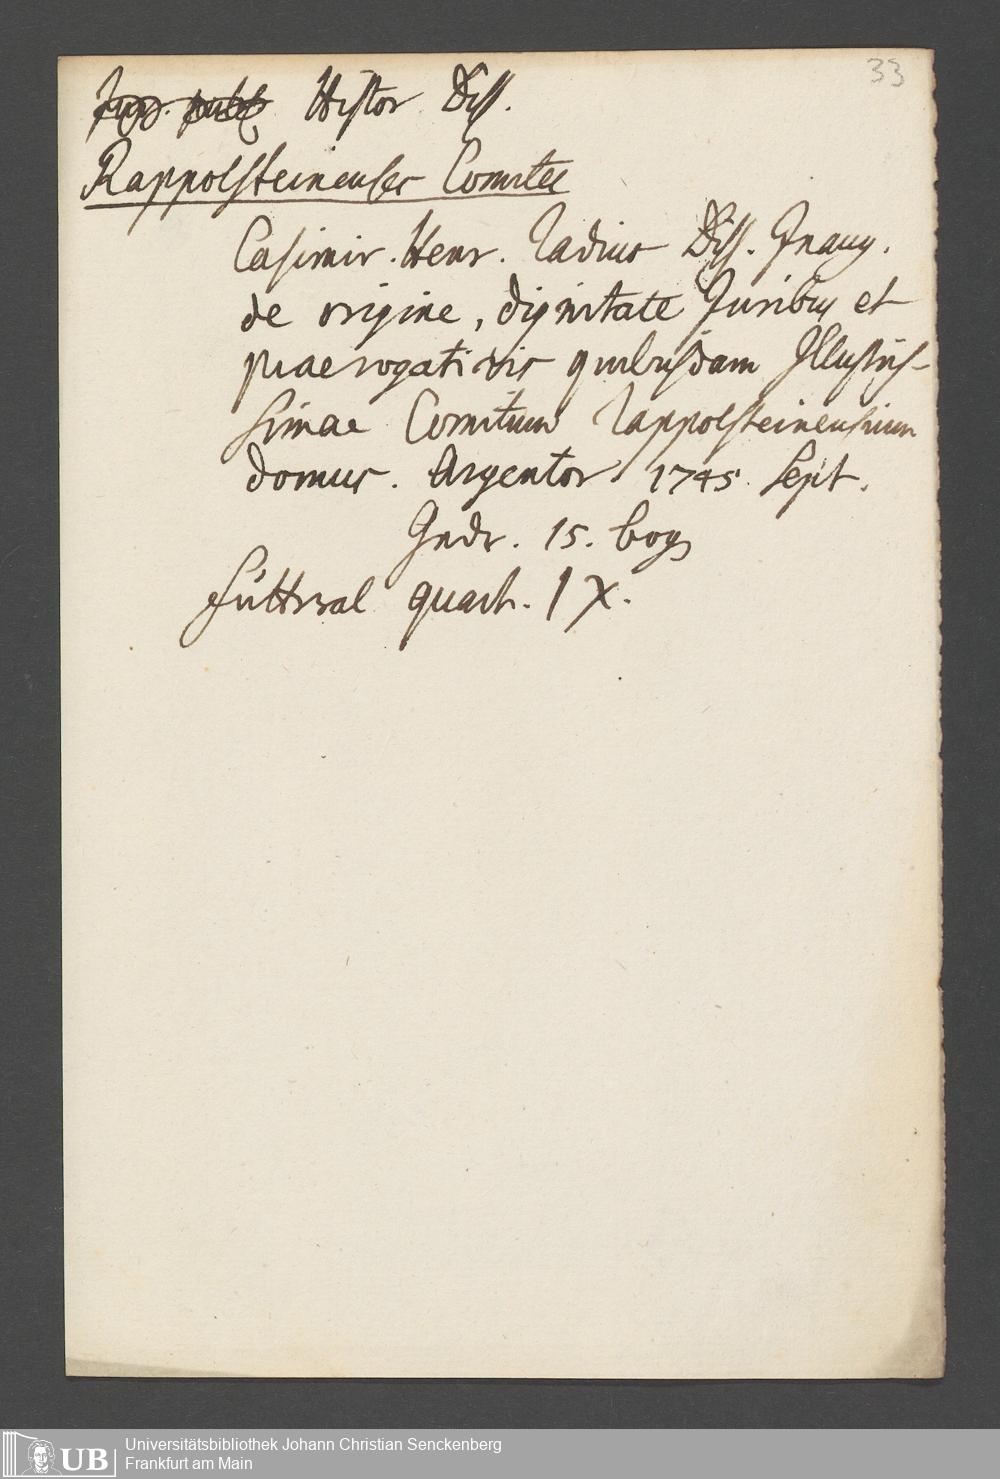 33
Jur. publ. Histor Diss.
Rappolsteinenses Comites
Casimir. Henr. Radius Diss. Inaug.
de origine, dignitate Juribus et
praerogativis quibusdam Illustris-
simae Comitum Rappolsteinensium
domus. Argentor 1745 Sept.
15. bogs
quart. 1 X.
Universitätsbibliothek Johann Christian Senckenberg
Frankfurt am Main
UB